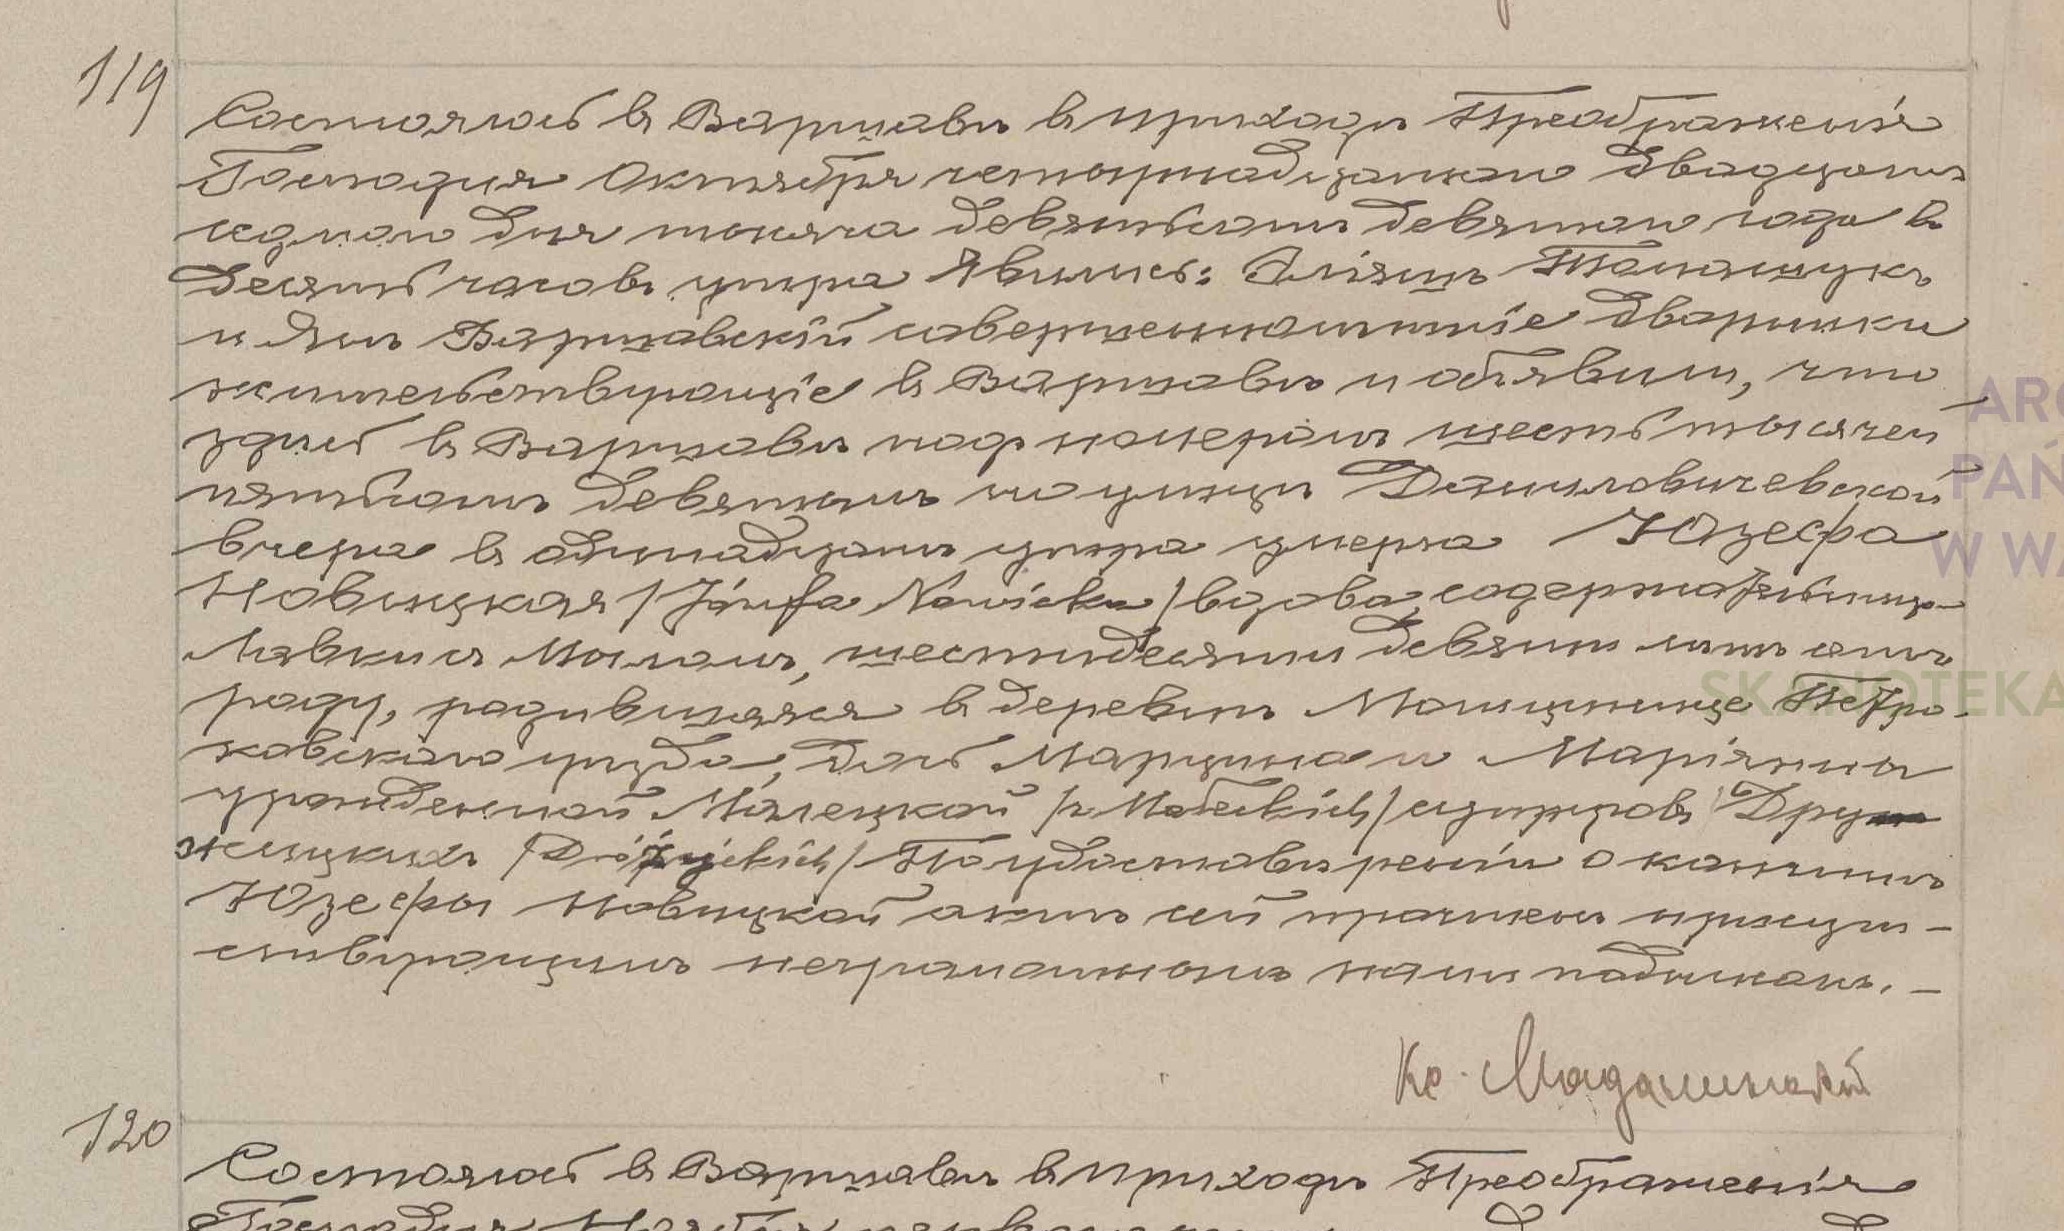 119
Состоялось въ Варшавѣ въ приходѣ Преображенія
Господня Октября четырнадцатаго двадцать
седьмого дня тысяча девятьсотъ девятаго года въ
десять часовъ утра Явились: Томашукъ
и Янъ Варшавскій совершеннолѣтніе дворники
жительствующіе въ Варшавѣ и объявили, что
здѣсь въ Варшавѣ подъ номеромъ шесть тысячей
пятьсотъ девятымъ по улицѣ Даниловичевской
вчера въ одиннадцать утра умерла Юзефа
Новицкая /Józefa Nowicka/ вдова, содержательница
Лавки съ Мыломъ, шестидесяти девяти лѣтъ отъ
роду, родившаяся въ деревнѣ Мощинице Петро-
ковскаго уѣзда, дочь Марцина и Маріянны
урожденной Малецкой /z Małeckich/ супруговъ Дру
жицкихъ /Drużyckich/ По удостовѣреніи о кончинѣ
Юзефы Новицкой актъ сей прочтенъ присут-
ствующимъ неграмотнымъ нами подписанъ. –
Кс. Мадалинскій
120
Состоялось въ Варшавѣ въ приходѣ Преображенія
Господня Ноября
ARC
PAŃ
W WA
SKANOTEKA